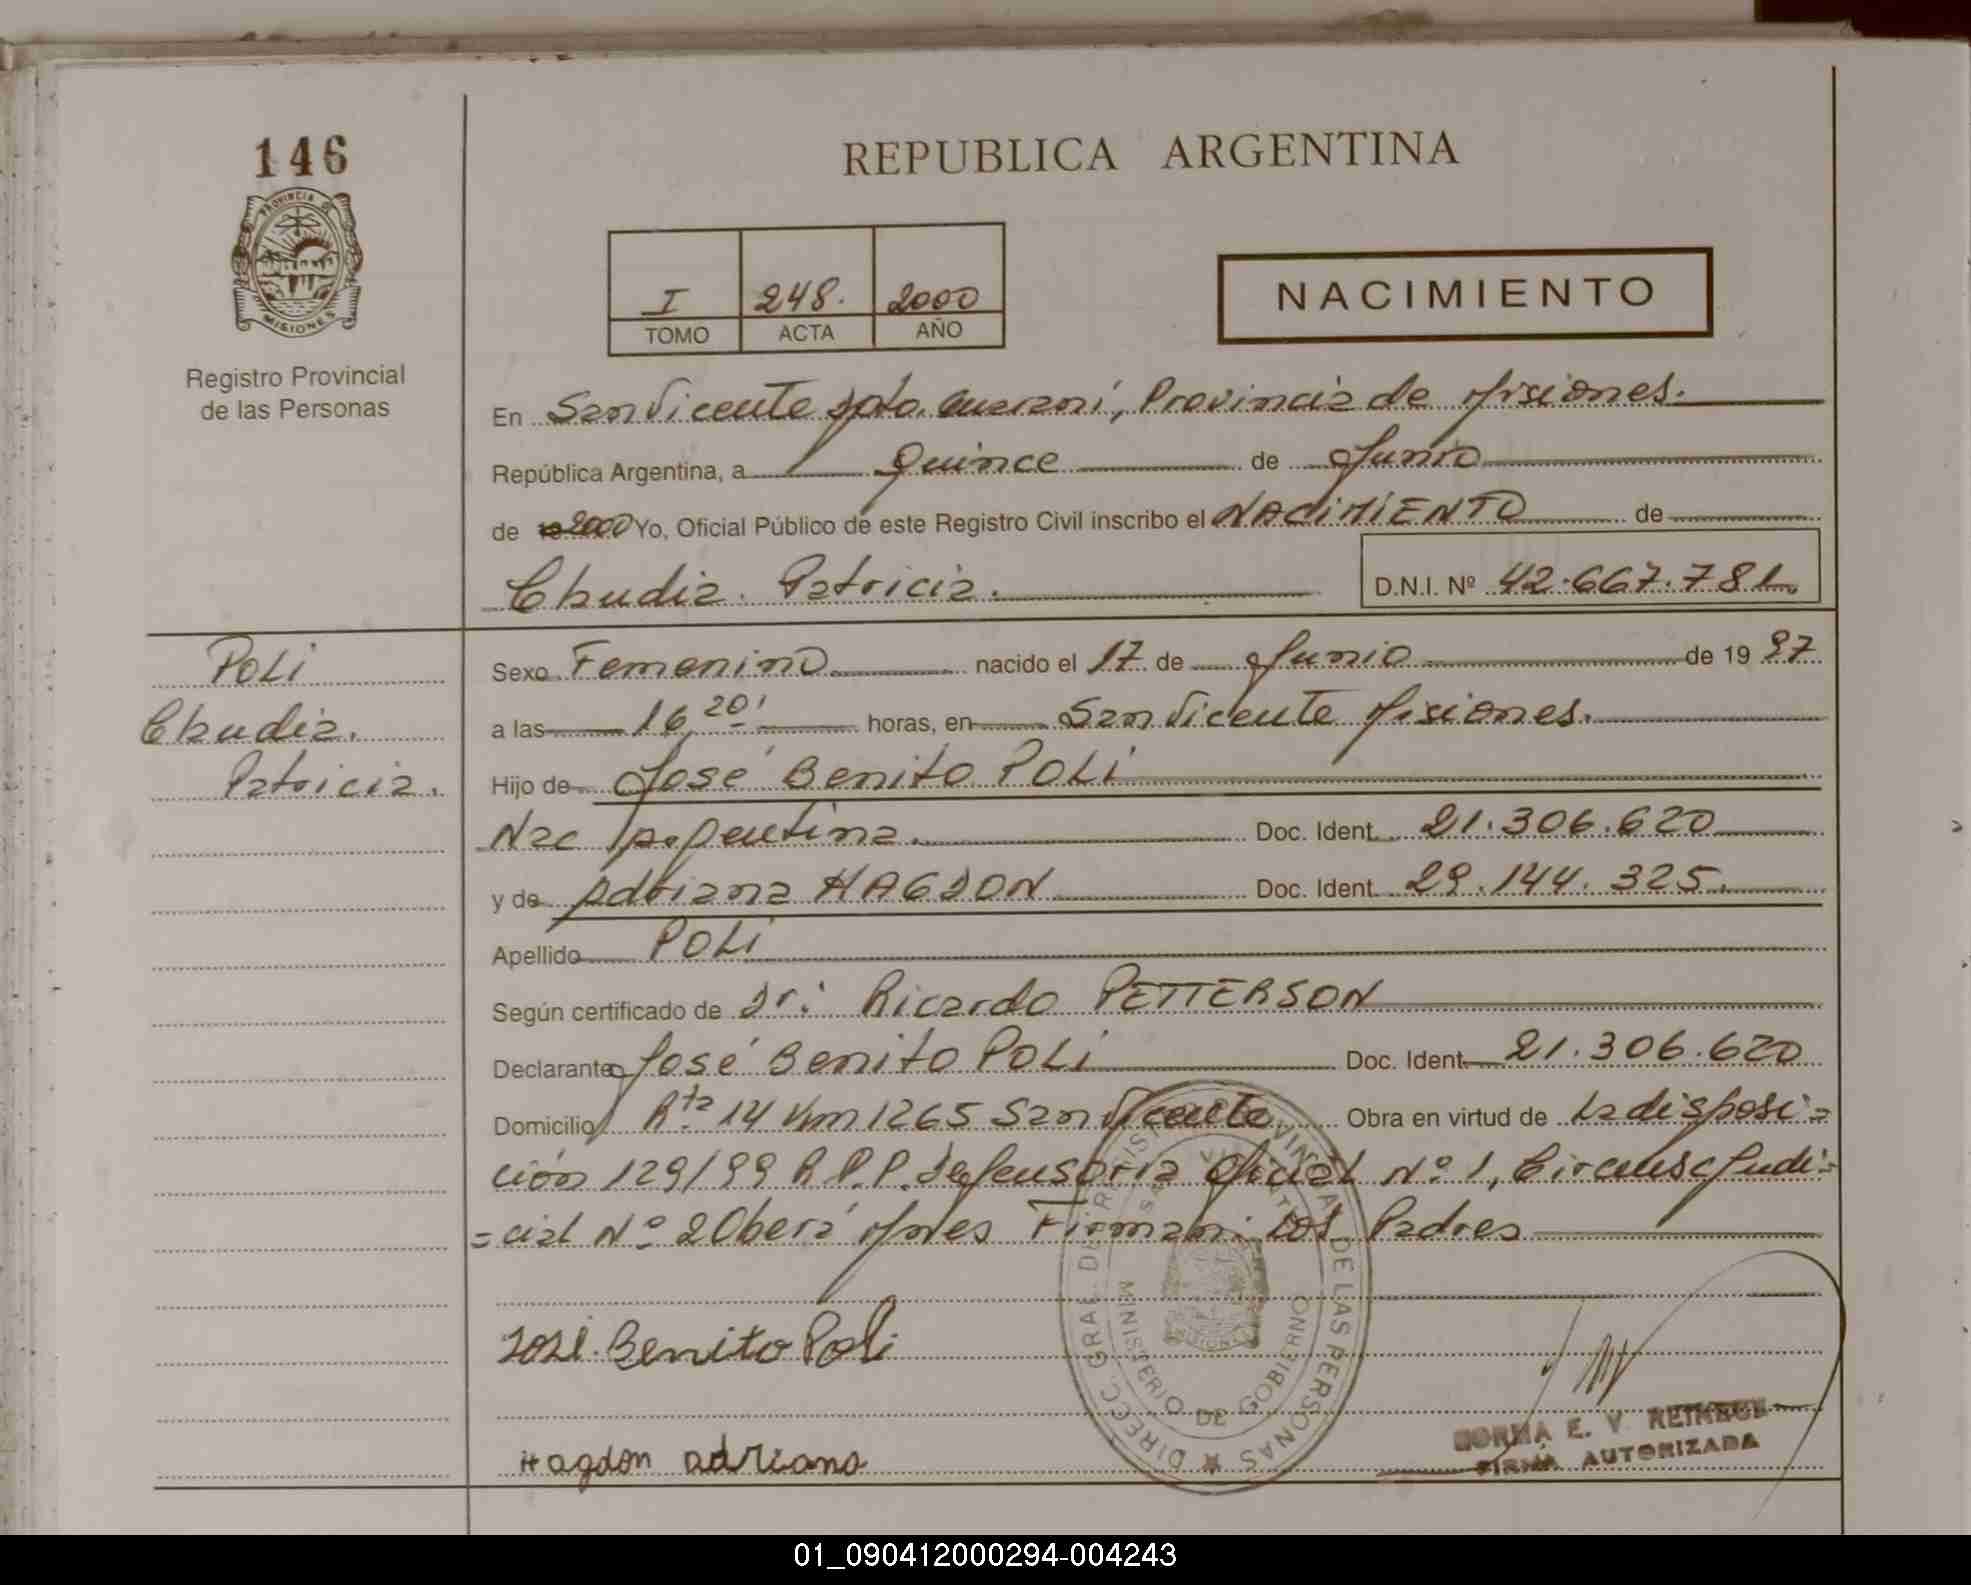 146
PROVINCIA DE
MISIONES
Registro Provincial
de las Personas
REPUBLICA ARGENTINA
I 248. 2000
TOMO ACTA AÑO
NACIMIENTO
En San Vicente Dpto. Guaraní, Provincia de Misiones.
República Argentina, a Quince de Junio
de 19 2000 Yo, Oficial Público de este Registro Civil inscribo el NACIMIENTO de
Claudia. Patricia. D.N.I. Nº 42.667.781
POLI
Claudia.
Patricia.
Sexo Femenino nacido el 17 de Junio de 19 97
a las 16,20' horas, en San Vicente Misiones.
Hijo de José Benito POLI
Nac Argentina. Doc. Ident. 21.306.620
y de Adriana HAGDON Doc. Ident. 29.144.325.
Apellido POLI
Según certificado de Dr: Ricardo PETTERSON
Declarante José Benito POLI Doc. Ident. 21.306.620
Domicilio Rta 14 Km 1265 San Vicente Obra en virtud de La disposi=
ción 129/99 R.P.P. Defensoria Oficial Nº 1, Circunsc Judi=
=cial Nº 2 Oberá Mnes Firman: Los Padres
José Benito Poli
Hagdon adriana
DIRECC. GRAL. DE REGISTRO PROVINCIAL DE LAS PERSONAS
SAN VICENTE
MINISTERIO DE GOBIERNO
NORMA E. V.
FIRMA AUTORIZADA
01_090412000294-004243